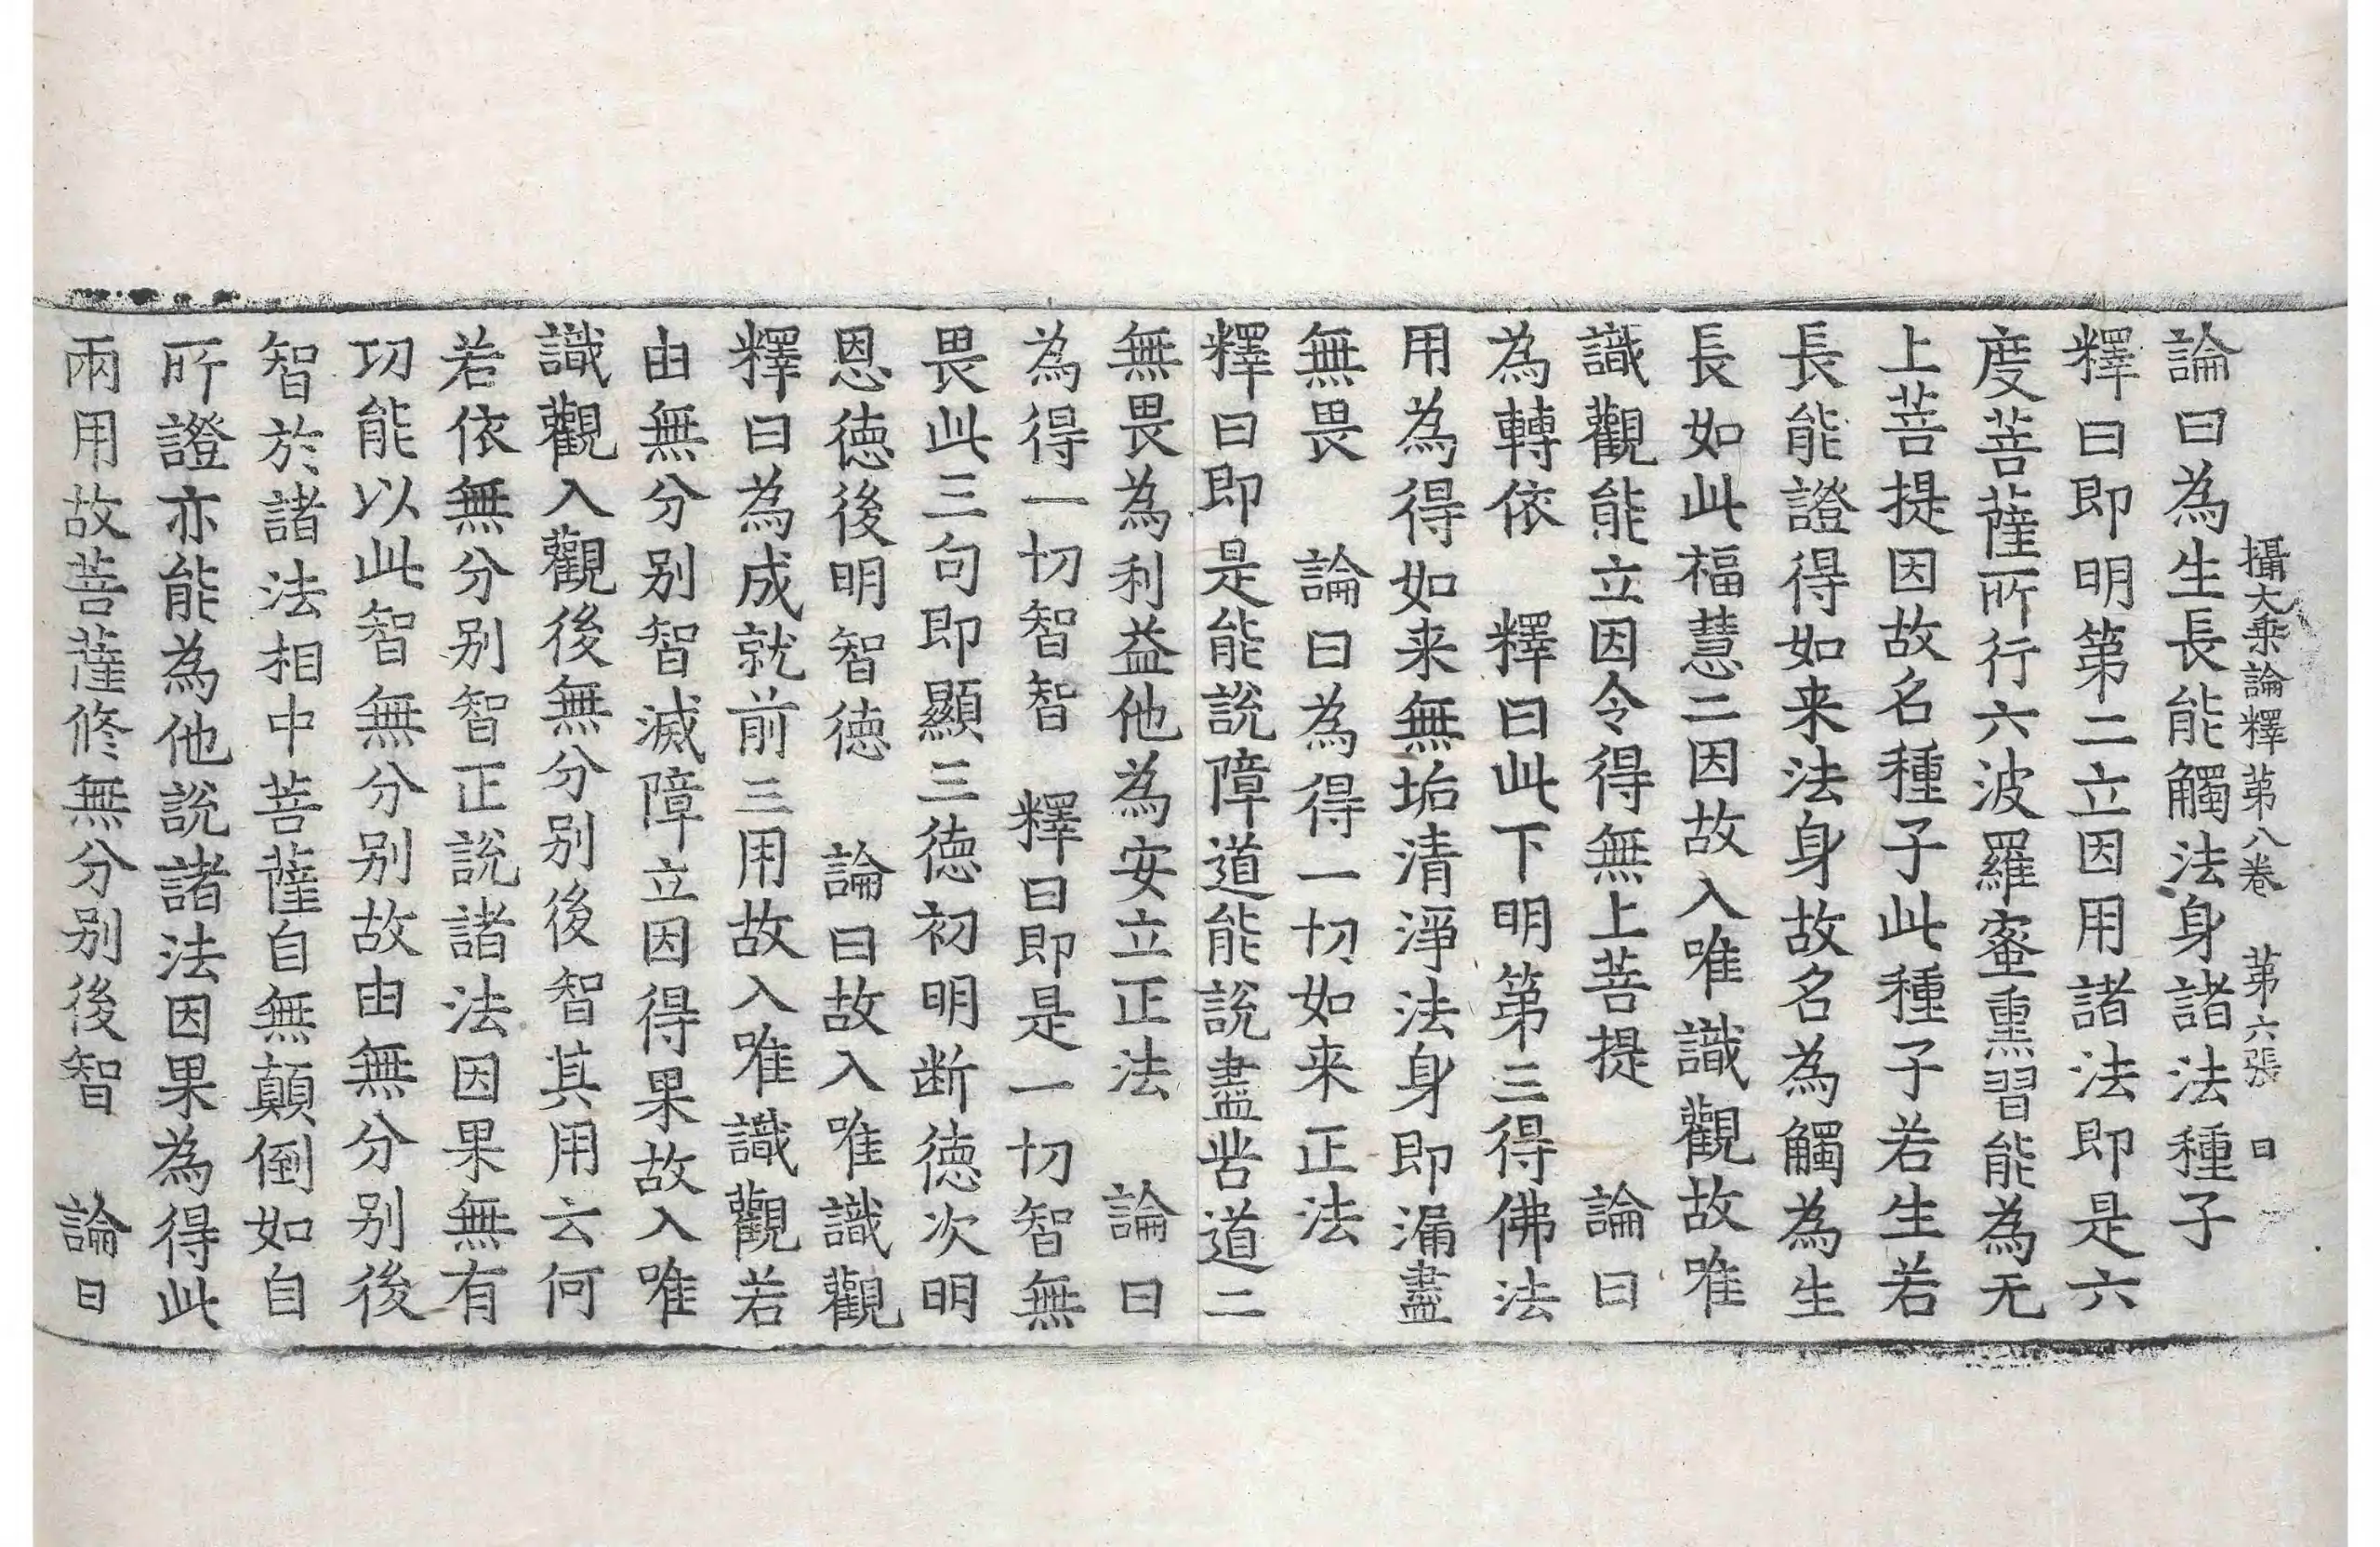 攝大乗論釋第八卷　第六張　日
論曰為生長能觸法身諸法種子
釋曰即明第二立因用諸法即是六
度菩薩所行六波羅蜜熏習能為无
上菩提因故名種子此種子若生若
長能證得如来法身故名為觸為生
長如此福慧二因故入唯識觀故唯
識觀能立因令得無上菩提　論曰
為轉依　釋曰此下明第三得佛法
用為得如来無垢清淨法身即漏盡
無畏　論曰為得一切如来正法
釋曰即是能說障道能說盡苦道二
無畏為利益他為安立正法　論曰
為得一切智智　釋曰即是一切智無
畏此三句即顯三徳初明断徳次明
恩徳後明智徳　論曰故入唯識觀
釋曰為成就前三用故入唯識觀若
由無分别智滅障立因得果故入唯
識觀入觀後無分别後智其用云何
若依無分别智正説諸法因果無有
功能以此智無分别故由無分别後
智於諸法相中菩薩自無顛倒如自
所證亦能為他説諸法因果為得此
兩用故菩薩修無分别後智　論曰